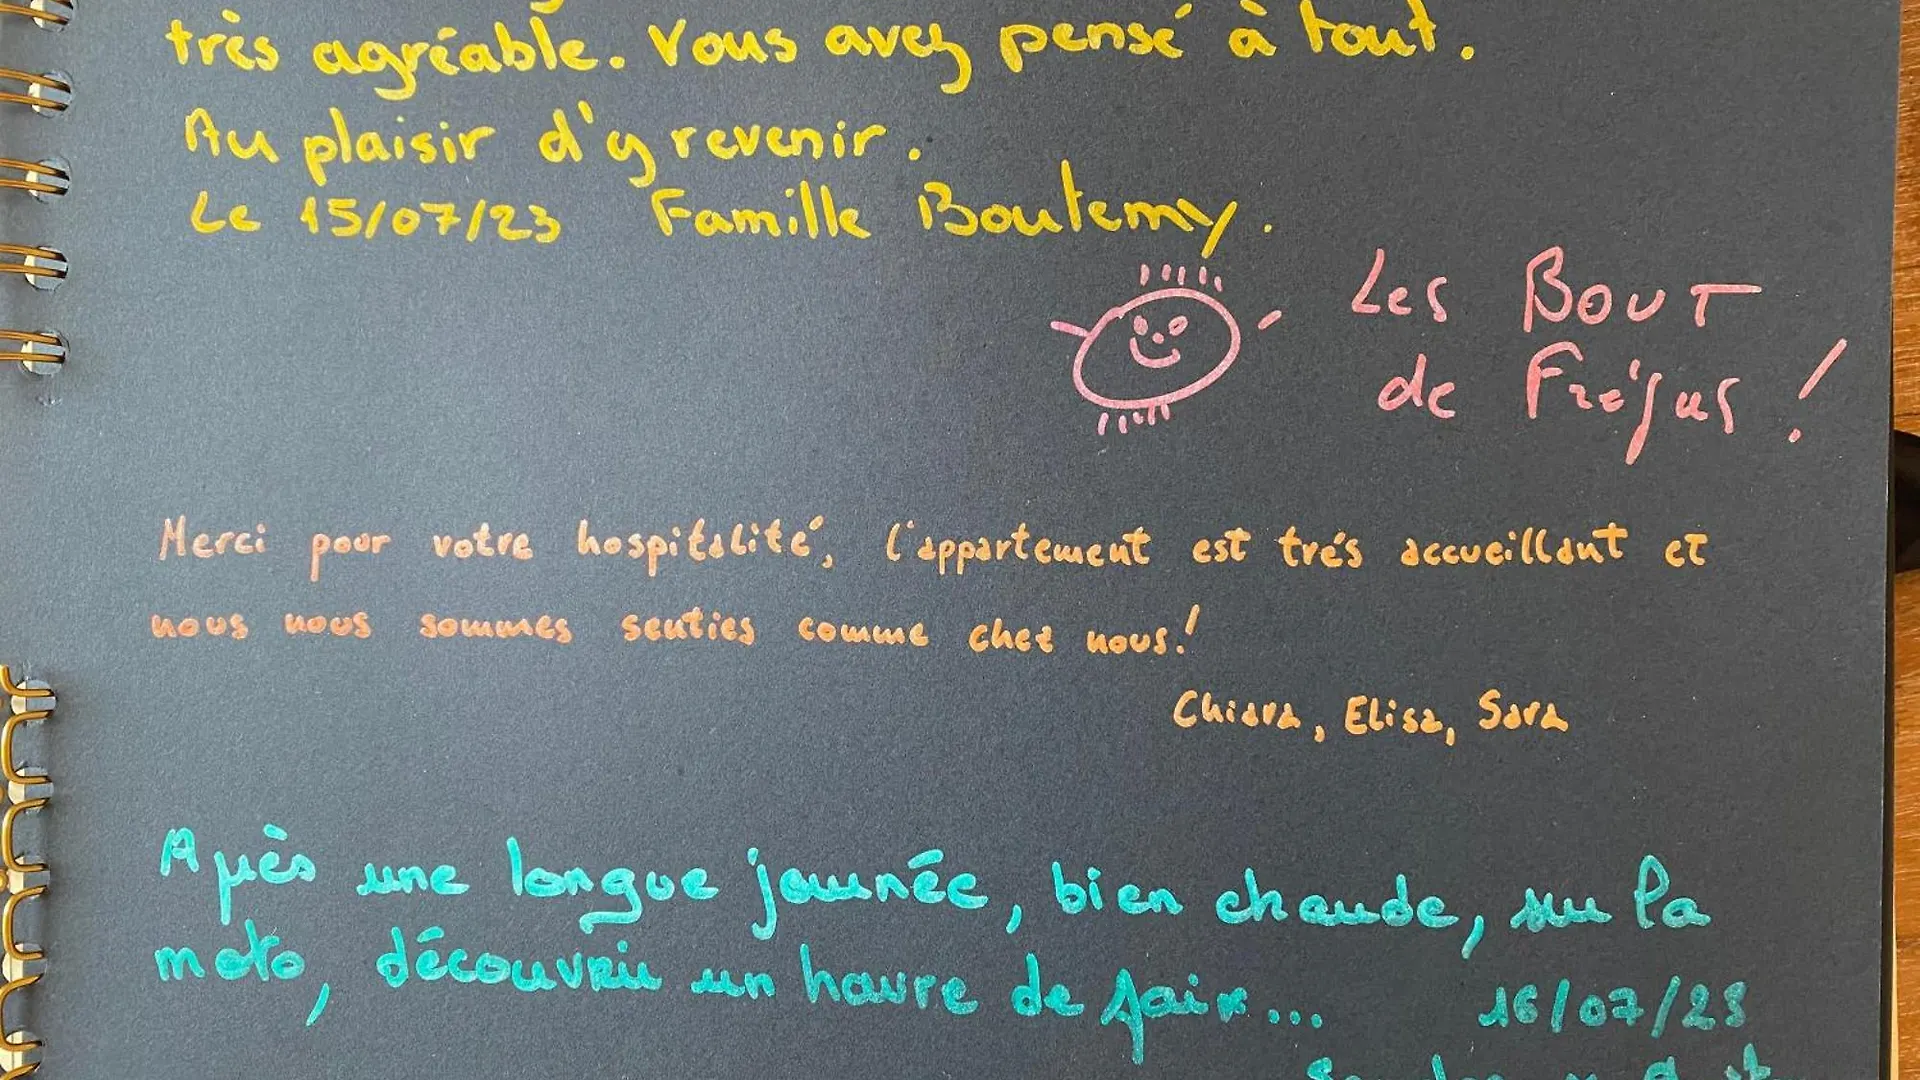 très agréable. Vous avez pensé à tout.
Au plaisir d'y revenir.
Le 15/07/23 Famille Boutemy.
Les BOUT
de Fréjus !
Merci pour votre hospitalité, l'appartement est trés accueillant et
nous nous sommes senties comme chez nous!
Chiara, Elisa, Sara
Après une longue journée, bien chaude, sur la
moto, découvrir un havre de paix...
16/07/23